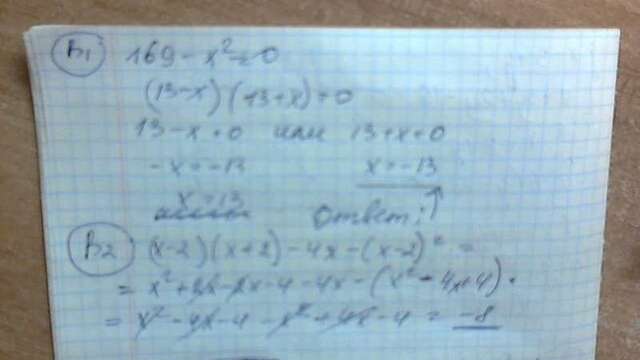 B1 169 - x² = 0
(13-x)(13+x)=0
13-x=0 или 13+x=0
-x=-13 x=-13
x=13 Ответ:↑
B2 (x-2)(x+2)-4x-(x-2)² =
= x²+2x-2x-4-4x-(x²-4x+4)=
= x²-4x-4-x²+4x-4 = -8